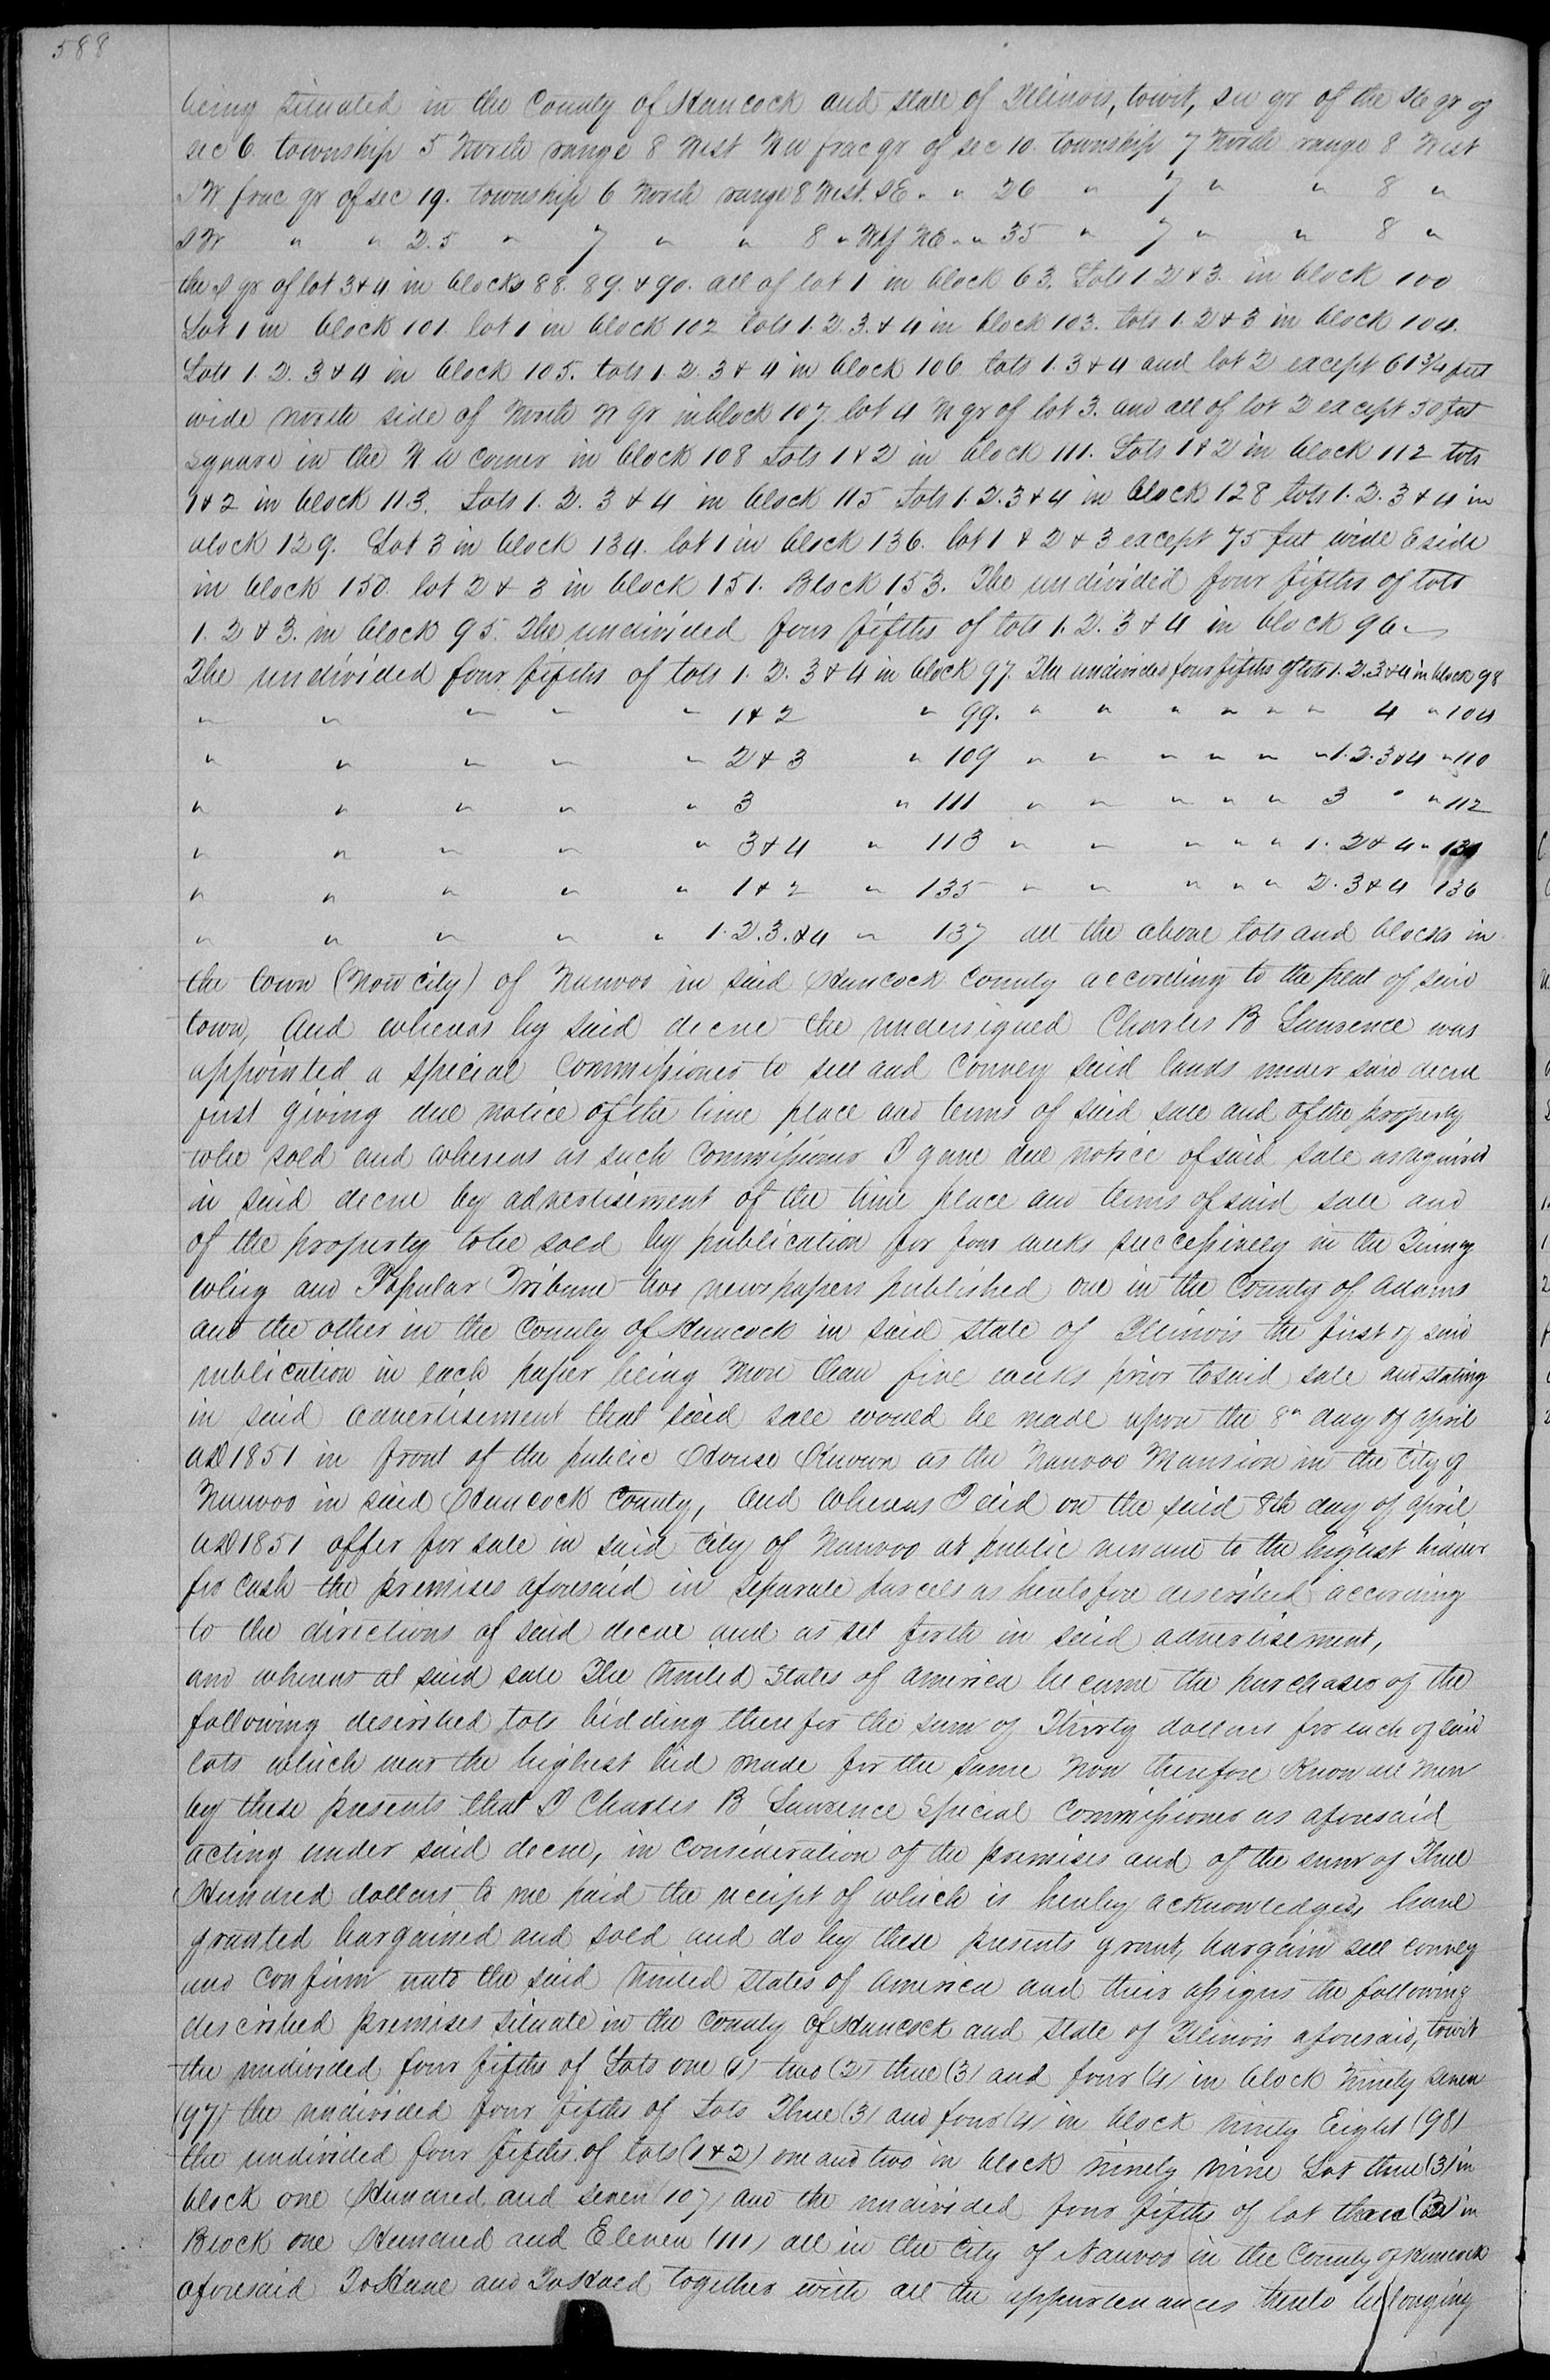 588
being situated in the County of Hancock and state of Illinois, towit, SW qr of the SE qr of
sec 6. township 5 North range 8 West NW frac qr of sec 10 township 7 North range 8 West
SW frac qr of sec 19. township 6 North range 8 West. SE " " 26 " 7 " " 8 "
SW " " 25 " 7 " " 8 " Wlf NE " " 35 " 7 " " 8 "
the S qr of lot 3 & 4 in blocks 88. 89. & 90. all of lot 1 in block 63. Lots 1. 2 & 3. in block 100
Lot 1 in block 101. lot 1 in block 102 lots 1. 2. 3. & 4 in block 103. lots 1. 2 & 3 in block 104.
Lots 1. 2. 3 & 4 in block 105. lots 1. 2. 3 & 4 in block 106 lots 1. 3 & 4 and lot 2 except 61 3/4 feet
wide north side of North N qr in block 107. lot 4 N qr of lot 3. and all of lot 2 except 50 feet
square in the N W corner in block 108 Lots 1 & 2 in block 111. Lots 1 & 2 in block 112 lots
1 & 2 in block 113. Lots 1. 2. 3 & 4 in block 115 Lots 1. 2. 3 & 4 in block 128 lots 1. 2. 3 & 4 in
block 129. Lot 3 in block 134. lot 1 in block 136. lot 1 & 2 & 3 except 75 feet wide E side
in block 150. lot 2 & 3 in block 151. Block 153. The undivided four fifths of lots
1. 2 & 3. in block 95. The undivided four fifths of lots 1. 2. 3 & 4 in block 96.
The undivided four fifths of lots 1. 2. 3 & 4 in block 97. The undivided four fifths of lots 1. 2. 3 & 4 in block 98
" " " " " 1 & 2 " 99. " " " " " " 4 " 104
" " " " " 2 & 3 " 109 " " " " " " 1. 2. 3 & 4 " 110
" " " " " 3 " 111 " " " " " 3 " " 112
" " " " " 3 & 4 " 113 " " " " " 1. 2 & 4 "
" " " " " 1 & 2 " 135 " " " " " 2. 3 & 4 136
" " " " " 1. 2. 3. & 4 " 137 all the above lots and blocks in
the town (Now city) of Nauvoo in said Hancock County according to the plat of said
town, And whereas by said decree the undersigned Charles B Lawrence was
appointed a special Commissioner to sell and Convey said lands under said decree
first giving due notice of the time place and terms of said sale and of the property
tobe sold and whereas as such Commissioner I gave due notice of said sale as required
in said decree by advertisement of the time place and terms of said sale and
of the property tobe sold by publication for four weeks successively in the Quincy
Whig and Popular Tribune two newspapers published one in the County of Adams
and the other in the County of Hancock in said state of Illinois the first of said
publication in each paper being more than five weeks prior to said sale and stating
in said advertisement that said sale would be made upon the 8th day of April
AD 1851 in front of the public House Known as the Nauvoo Mansion in the City of
Nauvoo in said Hancock County, and whereas I did on the said 8th day of April
AD 1851 offer for sale in said city of Nauvoo at public vendue to the highest bidder
for cash the premises aforesaid in separate parcels as heretofore described according
to the directions of said decree and as set forth in said advertisement,
and whereas at said sale The United States of America became the purchaser of the
following described lots bidding therefor the sum of Thirty dollars for each of said
lots which was the highest bid made for the same Now therefore Know all Men
by these presents that I Charles B Lawrence Special Commissioner as aforesaid
acting under said decree, in consideration of the premises and of the sum of Three
Hundred dollars to me paid the receipt of which is hereby acknowledged, have
granted bargained and sold and do by these presents grant, bargain sell convey
and confirm unto the said United States of America and their assigns the following
described premises situate in the County of Hancock and State of Illinois aforesaid, towit
the undivided four fifths of Lots one (1) two (2) three (3) and four (4) in block Ninety seven
(97) the undivided four fifths of Lots Three (3) and four (4) in block ninety Eight (98)
the undivided four fifths of lots (1 & 2) one and two in block ninety nine Lot three (3) in
block one Hundred and seven (107) and the undivided four fifths of lot three (3) in
Block one Hundred and Eleven (111) all in the City of Nauvoo in the County of Hancock
aforesaid To Have and To Hold together with all the appurtenances thereto belonging